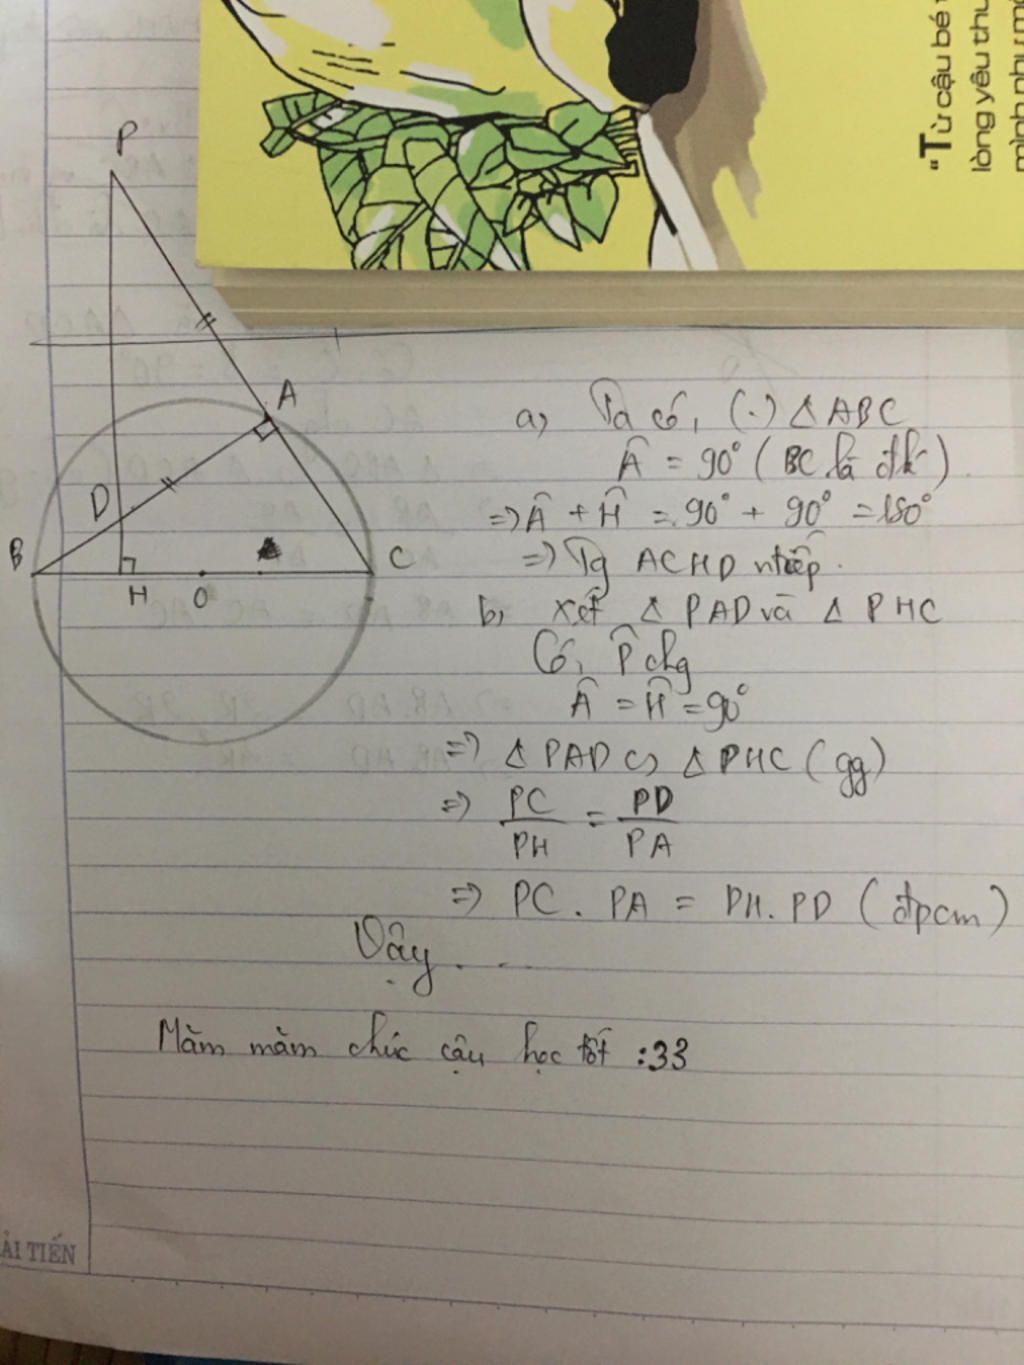 "Từ cậu bé
lòng yêu thư
mình như một
P
A
D
B
H
O
C
a, Ta có, (.) △ ABC
Â = 90° (BC là đk)
=> Â + Ĥ = 90° + 90° = 180°
=> Tg ACHD ntiếp.
b, xét △ PAD và △ PHC
Có, P̂ chg
Â = Ĥ = 90°
=> △ PAD ∽ △ PHC (gg)
=> PC/PH = PD/PA
=> PC . PA = PH. PD (đpcm)
Vậy . . .
Măm măm chúc cậu học tốt :33
ẢI TIẾN